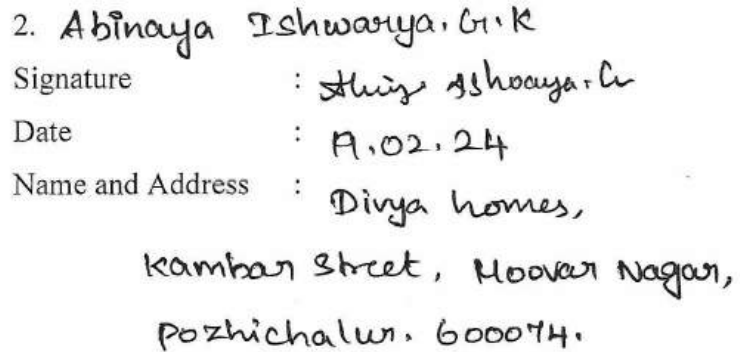 2. Abinaya Ishwarya. G.K
Signature :
Date : 19.02.24
Name and Address : Divya homes,
Kamban Street, Moovar Nagar,
Pozhichalur. 600074.